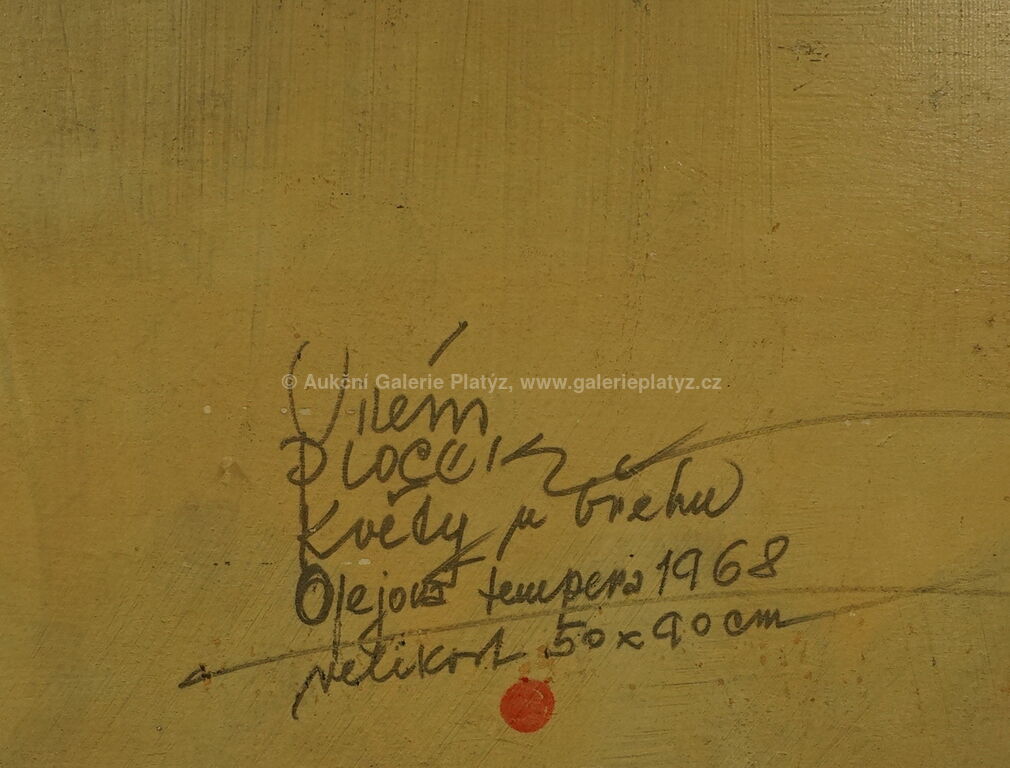 © Aukční Galerie Platýz, www.galerieplatyz.cz
Vilém
Plocek
Květy u břehu
Olejová tempera 1968
velikost 50x90cm